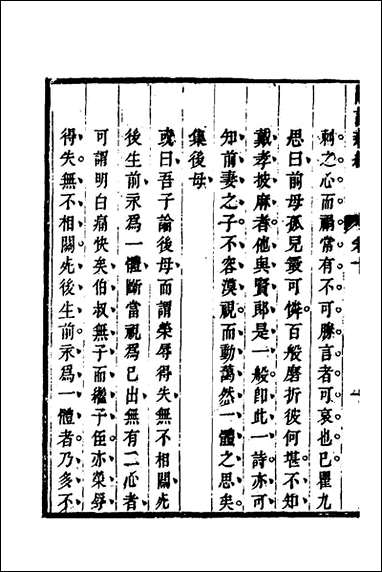 刺之心而禍常有不可勝言者可哀也已瞿九
思曰前母孤兒最可憐百般磨折彼何堪不知
戴孝披麻者他與賢郎是一般即此一詩亦可
知前妻之子不容漠視而動藹然一體之思矣
集後母
或曰吾子論後母而謂榮辱得失無不相關死
後生前永爲一體斷當視爲己出無有二心者
可謂明白痛快矣伯叔無子而繼子侄亦榮辱
得失無不相關死後生前永爲一體者乃多不